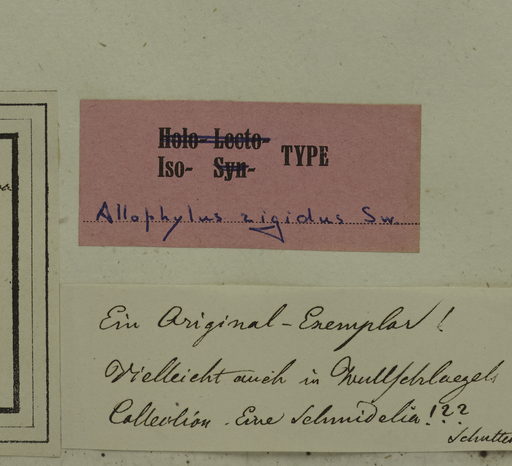 Holo- Lecto-
Iso- Syn- TYPE
Allophylus rigidus Sw.
Ein Original-Exemplar!
Vielleicht auch in Wullschlaegels
Collection. Eine Schmidelia!??